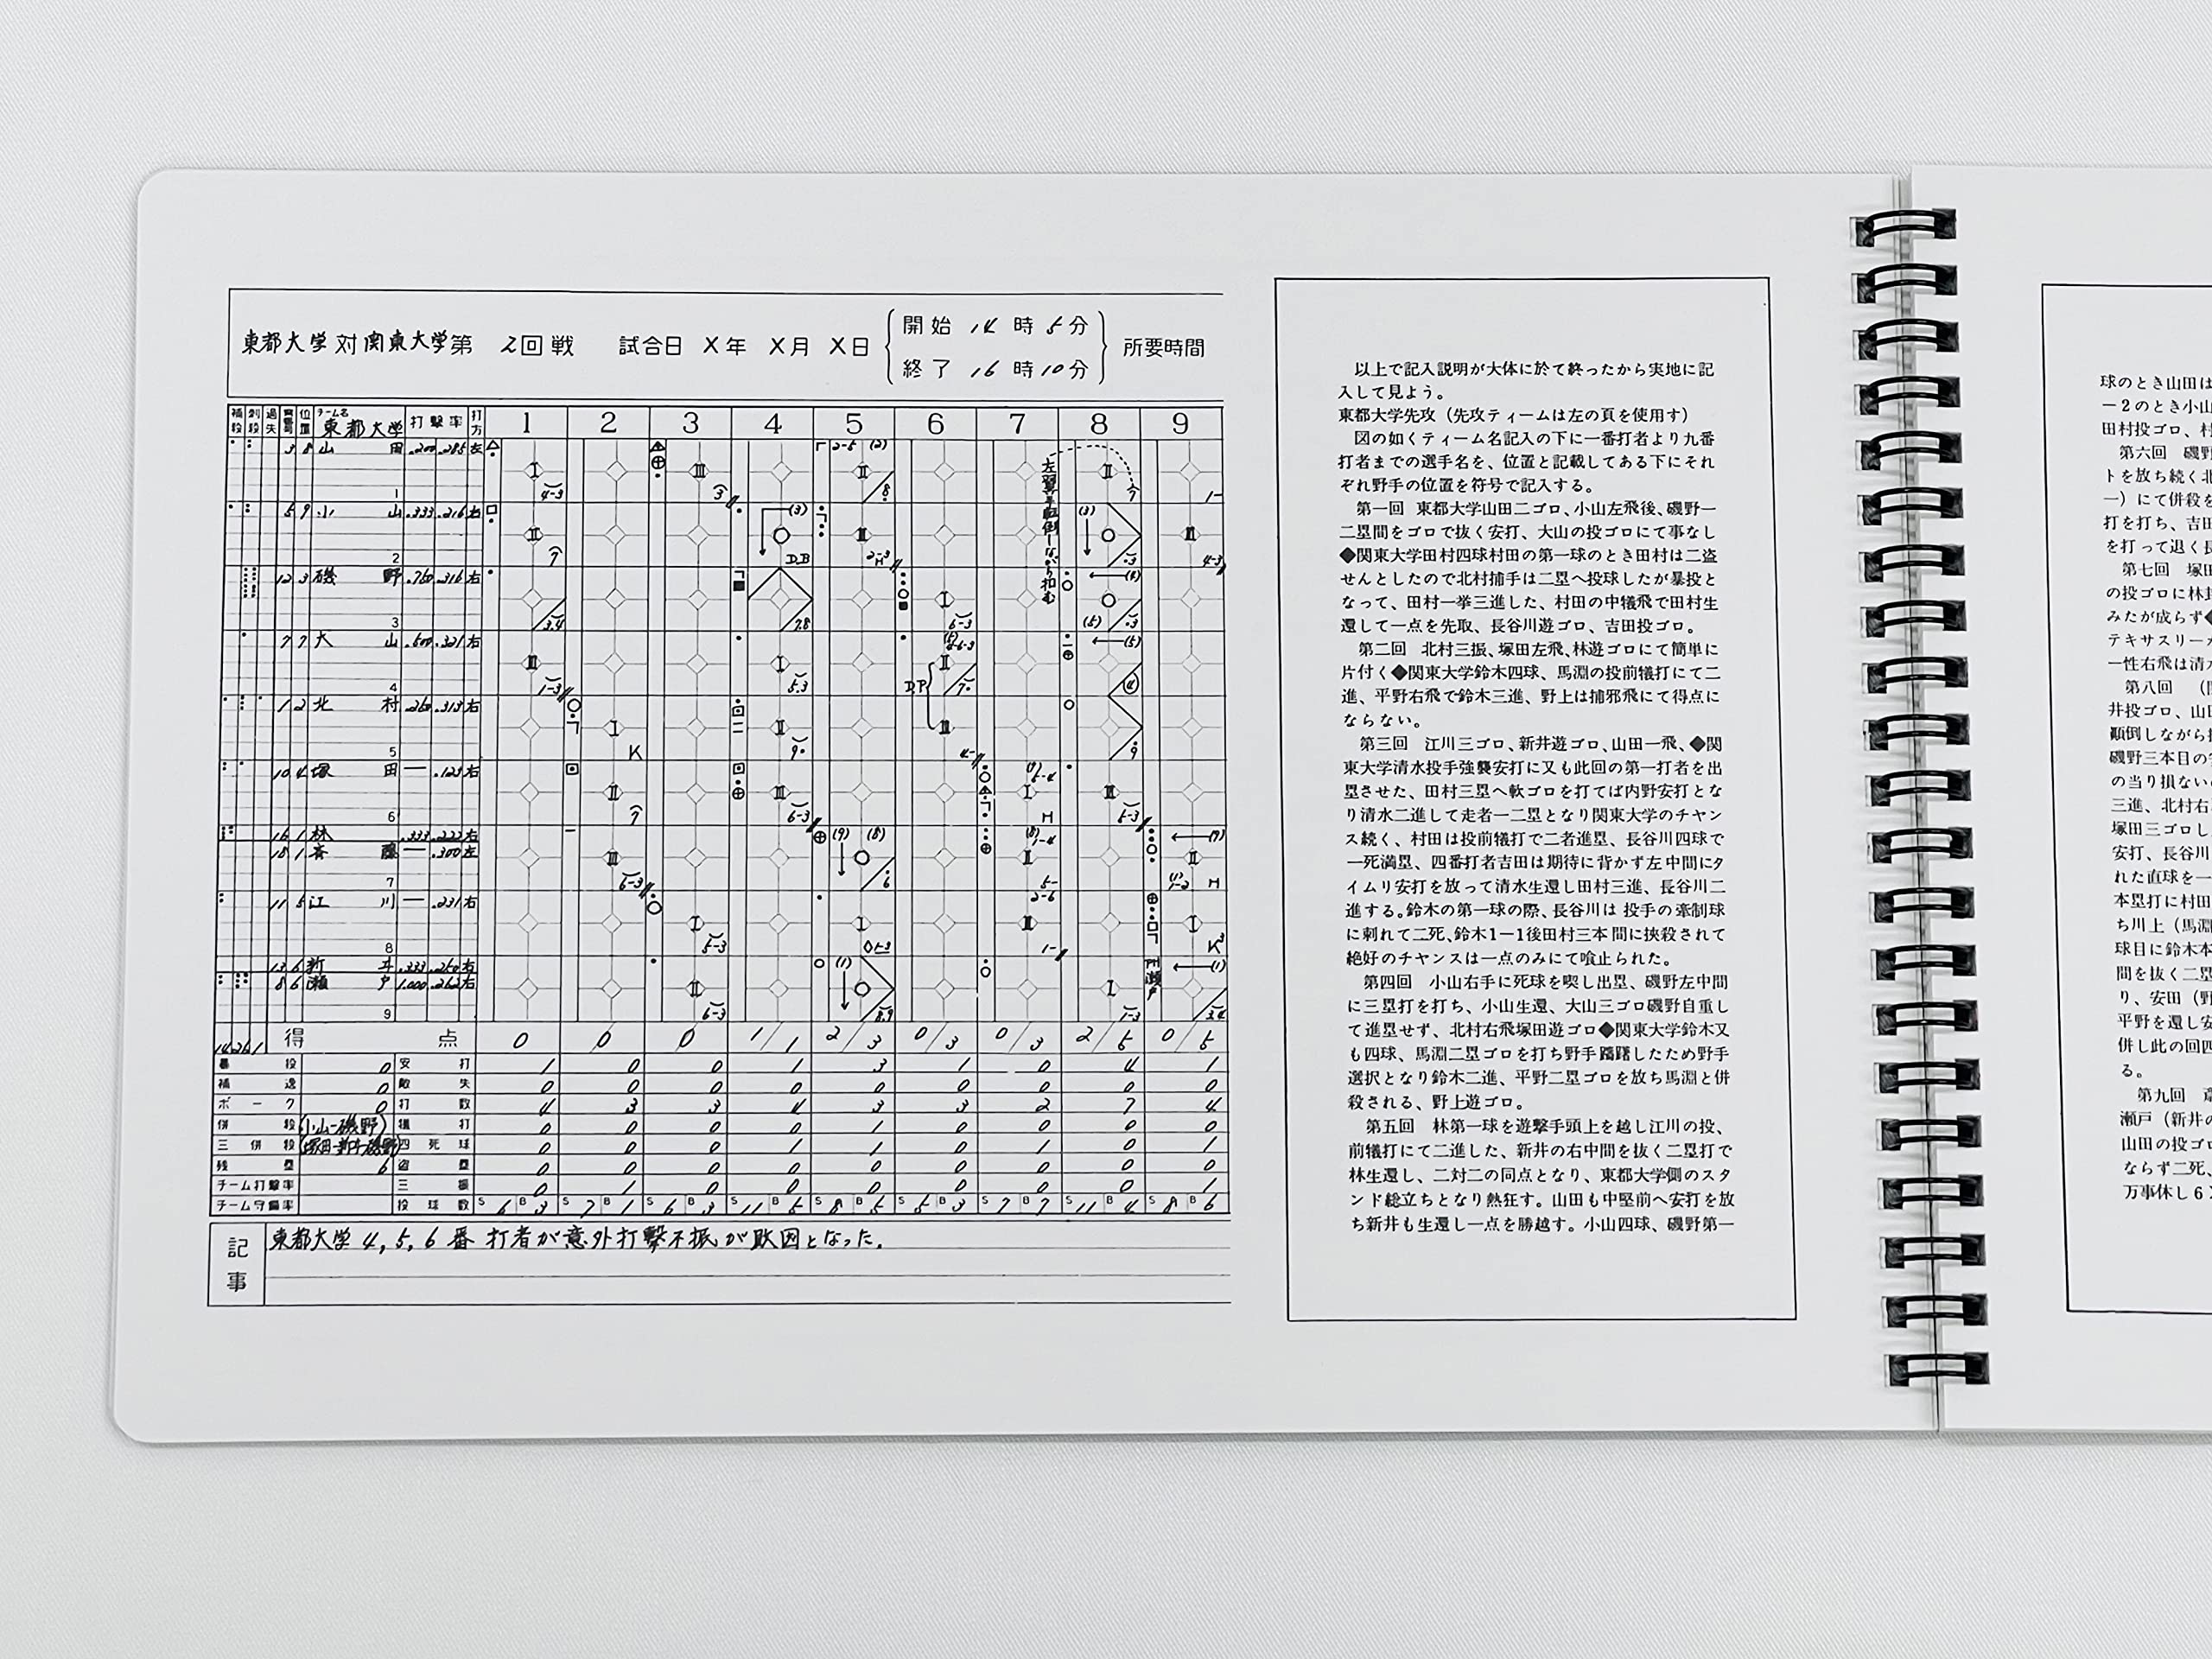 東都大学対関東大学第 2回戦 試合日 X年 X月 X日 開始 14時5分 終了 16時10分 所要時間
補殺 刺殺 過失 背番号 位置 チーム名 東都大学 打撃率 打方 1 2 3 4 5 6 7 8 9
3 8 山田 .200 .285 左
1
5 9 小山 .333 .216 右
2
12 3 磯野 .750 .316 右
3
7 7 大山 .500 .321 右
4
1 2 北村 .313 右
5
10 4 塚田 — .123 右
6
16 1 林 .333 .222 右
18 1 斉藤 — .300 左
7
11 5 江川 — .231 右
8
13 6 新井 .333 .250 右
8 6 瀬戸 1.000 .262 右
9
左翼手転倒しながら捕む
得点 0 0 0 1/1 2/3 0/3 0/3 2/5 0/5
暴投 0 安打 1 0 0 1 3 1 0 4 1
補逸 0 敵失 0 0 0 0 0 0 0 0 0
ボーク 0 打数 4 3 3 4 3 3 2 7 4
併殺 (小山-磯野) 犠打 0 0 0 0 1 0 0 0 0
三併殺 (塚田-新井-磯野) 四死球 0 0 0 1 1 0 1 0 1
残塁 6 盗塁 0 0 0 0 0 0 0 0 0
チーム打撃率 三振 0 1 0 0 0 0 0 0 1
チーム守備率 投球数 S 6 B 3 S 7 B 1 S 6 B 3 S 11 B 5 S 8 B 5 S 5 B 3 S 7 B 7 S 11 B 4 S 8 B 6
記事 東都大学4,5,6番打者が意外打撃不振が敗因となった。
以上で記入説明が大体に於て終ったから実地に記
入して見よう。
東都大学先攻（先攻ティームは左の頁を使用す）
図の如くティーム名記入の下に一番打者より九番
打者までの選手名を、位置と記載してある下にそれ
ぞれ野手の位置を符号で記入する。
第一回 東都大学山田二ゴロ、小山左飛後、磯野一
二塁間をゴロで抜く安打、大山の投ゴロにて事なし
◆関東大学田村四球村田の第一球のとき田村は二盗
せんとしたので北村捕手は二塁へ投球したが暴投と
なって、田村一挙三進した、村田の中犠飛で田村生
還して一点を先取、長谷川遊ゴロ、吉田投ゴロ。
第二回 北村三振、塚田左飛、林遊ゴロにて簡単に
片付く◆関東大学鈴木四球、馬淵の投前犠打にて二
進、平野右飛で鈴木三進、野上は捕邪飛にて得点に
ならない。
第三回 江川三ゴロ、新井遊ゴロ、山田一飛、◆関
東大学清水投手強襲安打に又も此回の第一打者を出
塁させた、田村三塁へ軟ゴロを打てば内野安打とな
り清水二進して走者一二塁となり関東大学のチャン
ス続く、村田は投前犠打で二者進塁、長谷川四球で
一死満塁、四番打者吉田は期待に背かず左中間にタ
イムリ安打を放って清水生還し田村三進、長谷川二
進する。鈴木の第一球の際、長谷川は投手の牽制球
に刺れて二死、鈴木1－1後田村三本間に挟殺されて
絶好のチャンスは一点のみにて喰止られた。
第四回 小山右手に死球を喫し出塁、磯野左中間
に三塁打を打ち、小山生還、大山三ゴロ磯野自重し
て進塁せず、北村右飛塚田遊ゴロ◆関東大学鈴木又
も四球、馬淵二塁ゴロを打ち野手躊躇したため野手
選択となり鈴木二進、平野二塁ゴロを放ち馬淵と併
殺される、野上遊ゴロ。
第五回 林第一球を遊撃手頭上を越し江川の投、
前犠打にて二進した、新井の右中間を抜く二塁打で
林生還し、二対二の同点となり、東都大学側のスタ
ンド総立ちとなり熱狂す。山田も中堅前へ安打を放
ち新井も生還し一点を勝越す。小山四球、磯野第一
球のとき山田は
－2のとき小山
田村投ゴロ、村
第六回 磯野
トを放ち続く北
一）にて併殺を
打を打ち、吉田
を打って退く長
第七回 塚田
の投ゴロに林封
みたが成らず◆
テキサスリーカ
一性右飛は清水
第八回
井投ゴロ、山田
顚倒しながら捕
磯野三本目の安
の当り損ない
三進、北村右
塚田三ゴロし
安打、長谷川
れた直球を一
本塁打に村田
ち川上（馬淵
球目に鈴木本
間を抜く二塁
り、安田（野
平野を還し安
併し此の回四
る。
第九回
瀬戸（新井の
山田の投ゴロ
ならず二死、
万事休し6